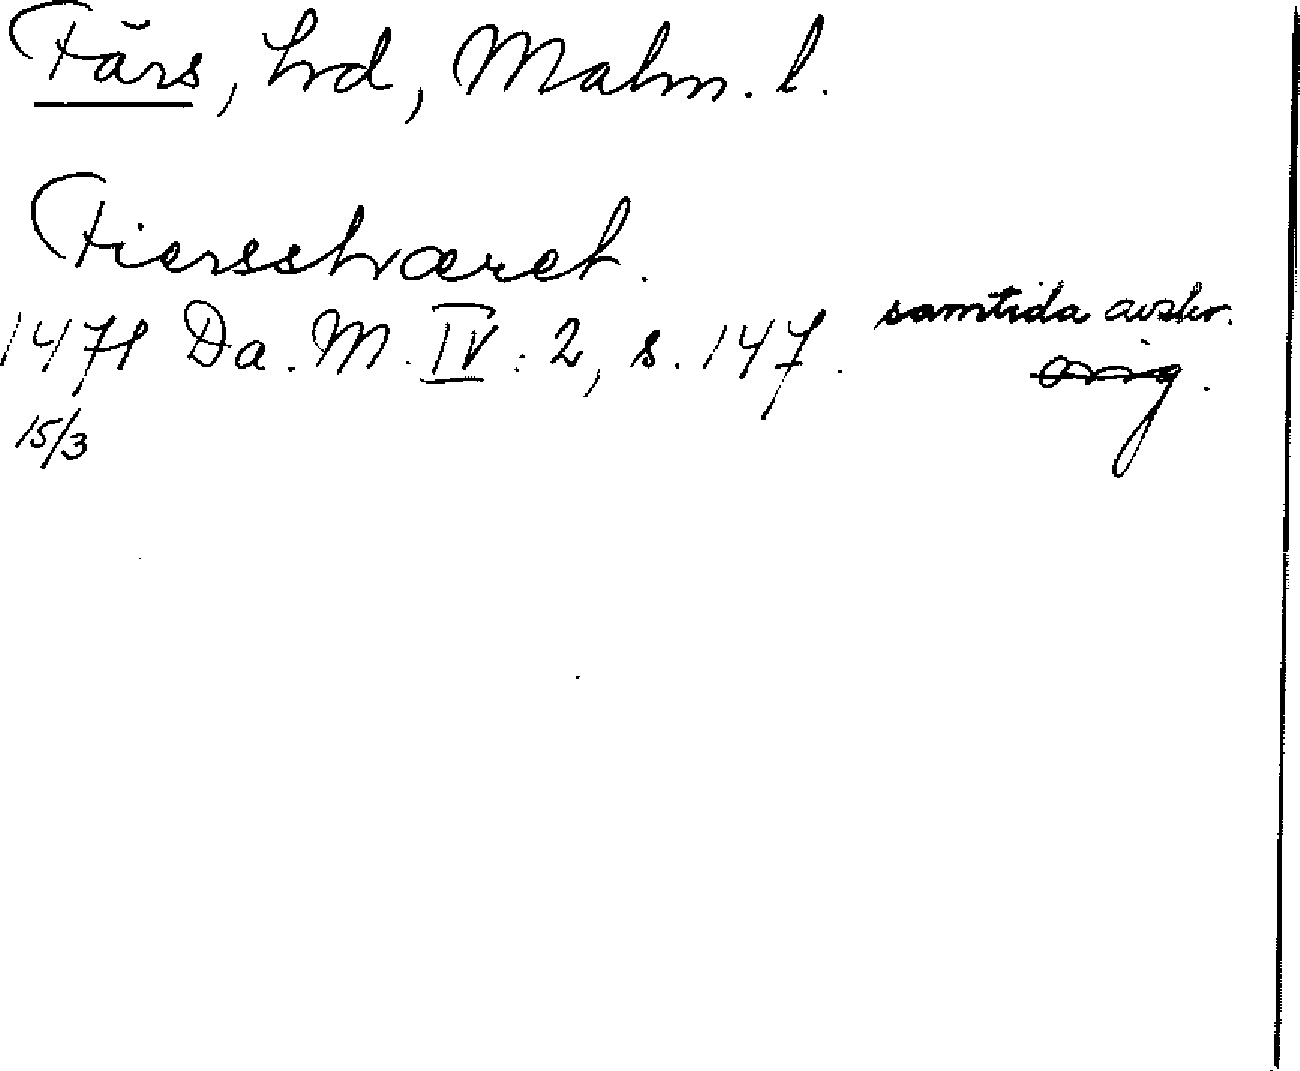 Färs, hrd, Malm. l.
Fiersshæreth.
1471 Da. M. IV: 2, s. 147. samtida avskr.
15/3 orig.